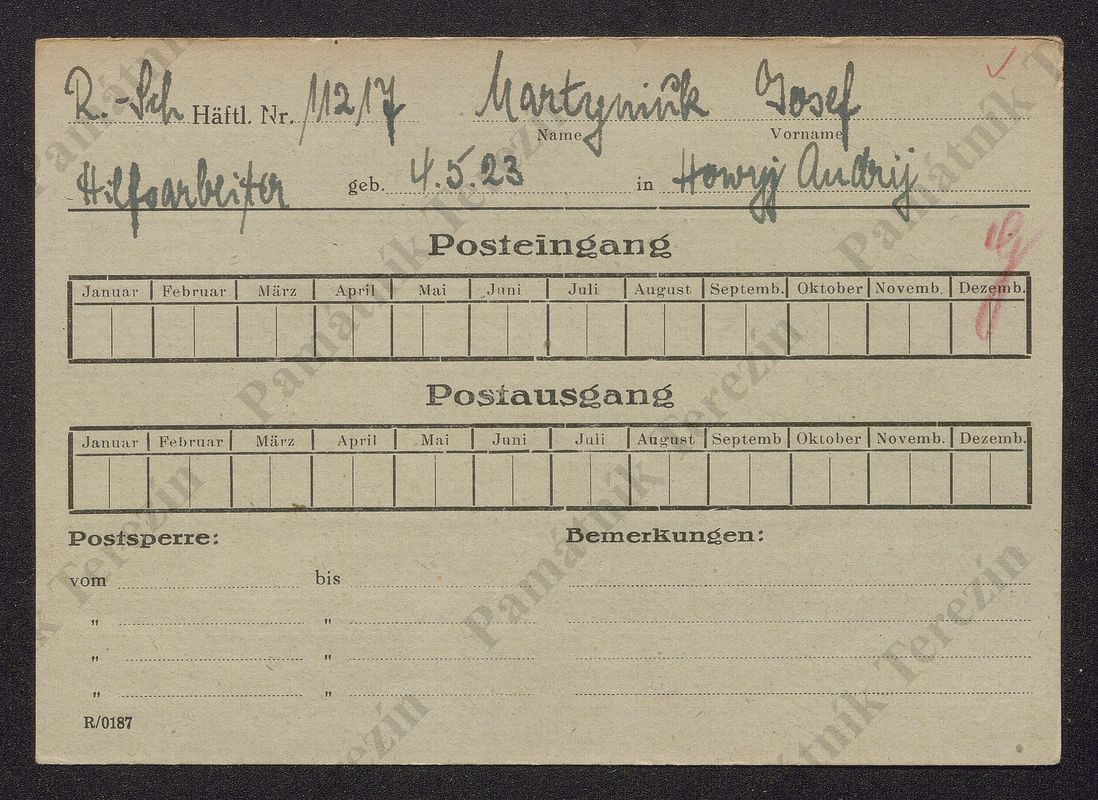 R.-Sch Häftl. Nr. 11217 Martyniuk Josef
Name Vorname
Hilfsarbeiter geb. 4.5.23 in Howyj Andrij
Posteingang
Januar Februar März April Mai Juni Juli August Septemb. Oktober Novemb. Dezemb.
Postausgang
Januar Februar März April Mai Juni Juli August Septemb Oktober Novemb. Dezemb.
Postsperre: Bemerkungen:
vom bis
" "
" "
" "
R/0187
Památník Terezín